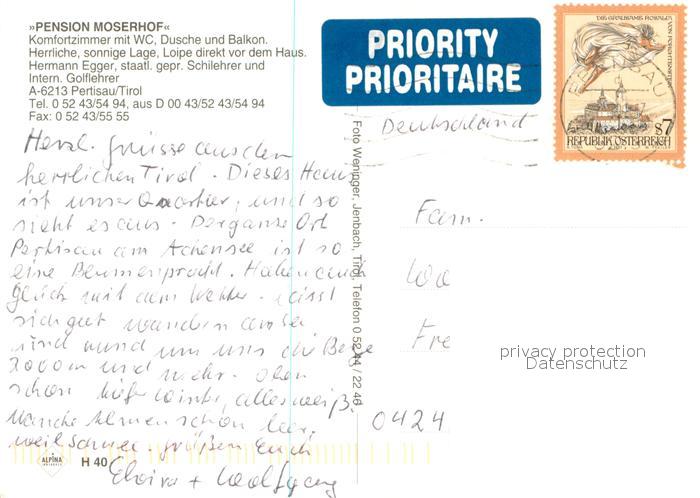 »PENSION MOSERHOF«
Komfortzimmer mit WC, Dusche und Balkon.
Herrliche, sonnige Lage, Loipe direkt vor dem Haus.
Hermann Egger, staatl. gepr. Schilehrer und
Intern. Golflehrer
A-6213 Pertisau/Tirol
Tel. 0 52 43/54 94, aus D 00 43/52 43/54 94
Fax: 0 52 43/55 55
Herzl. Grüsse aus dem
herrlichen Tirol. Dieses Haus
ist unser Quartier, und so
sieht es aus. Der ganze Ort
Pertisau am Achensee ist so
eine Blumenpracht. Haben auch
Glück mit dem Wetter.
sich gut wandern
sind rund um uns die Berge
2000m und mehr. Oben
schon tiefer Winter, alles weiß.
Manche Almen schon leer,
weil Schnee. Grüßen Euch
Elvira + Wolfgang
ALPINA
H 40
Foto Weninger, Jenbach, Tirol, Telefon 0 52 44 / 22 46
PRIORITY
PRIORITAIRE
DIE GRAUSAME ROSALIA
VON FORCHTENSTEIN
S7
REPUBLIK ÖSTERREICH
Deutschland
Fam.
Wo
Fre
0424
privacy protection
Datenschutz